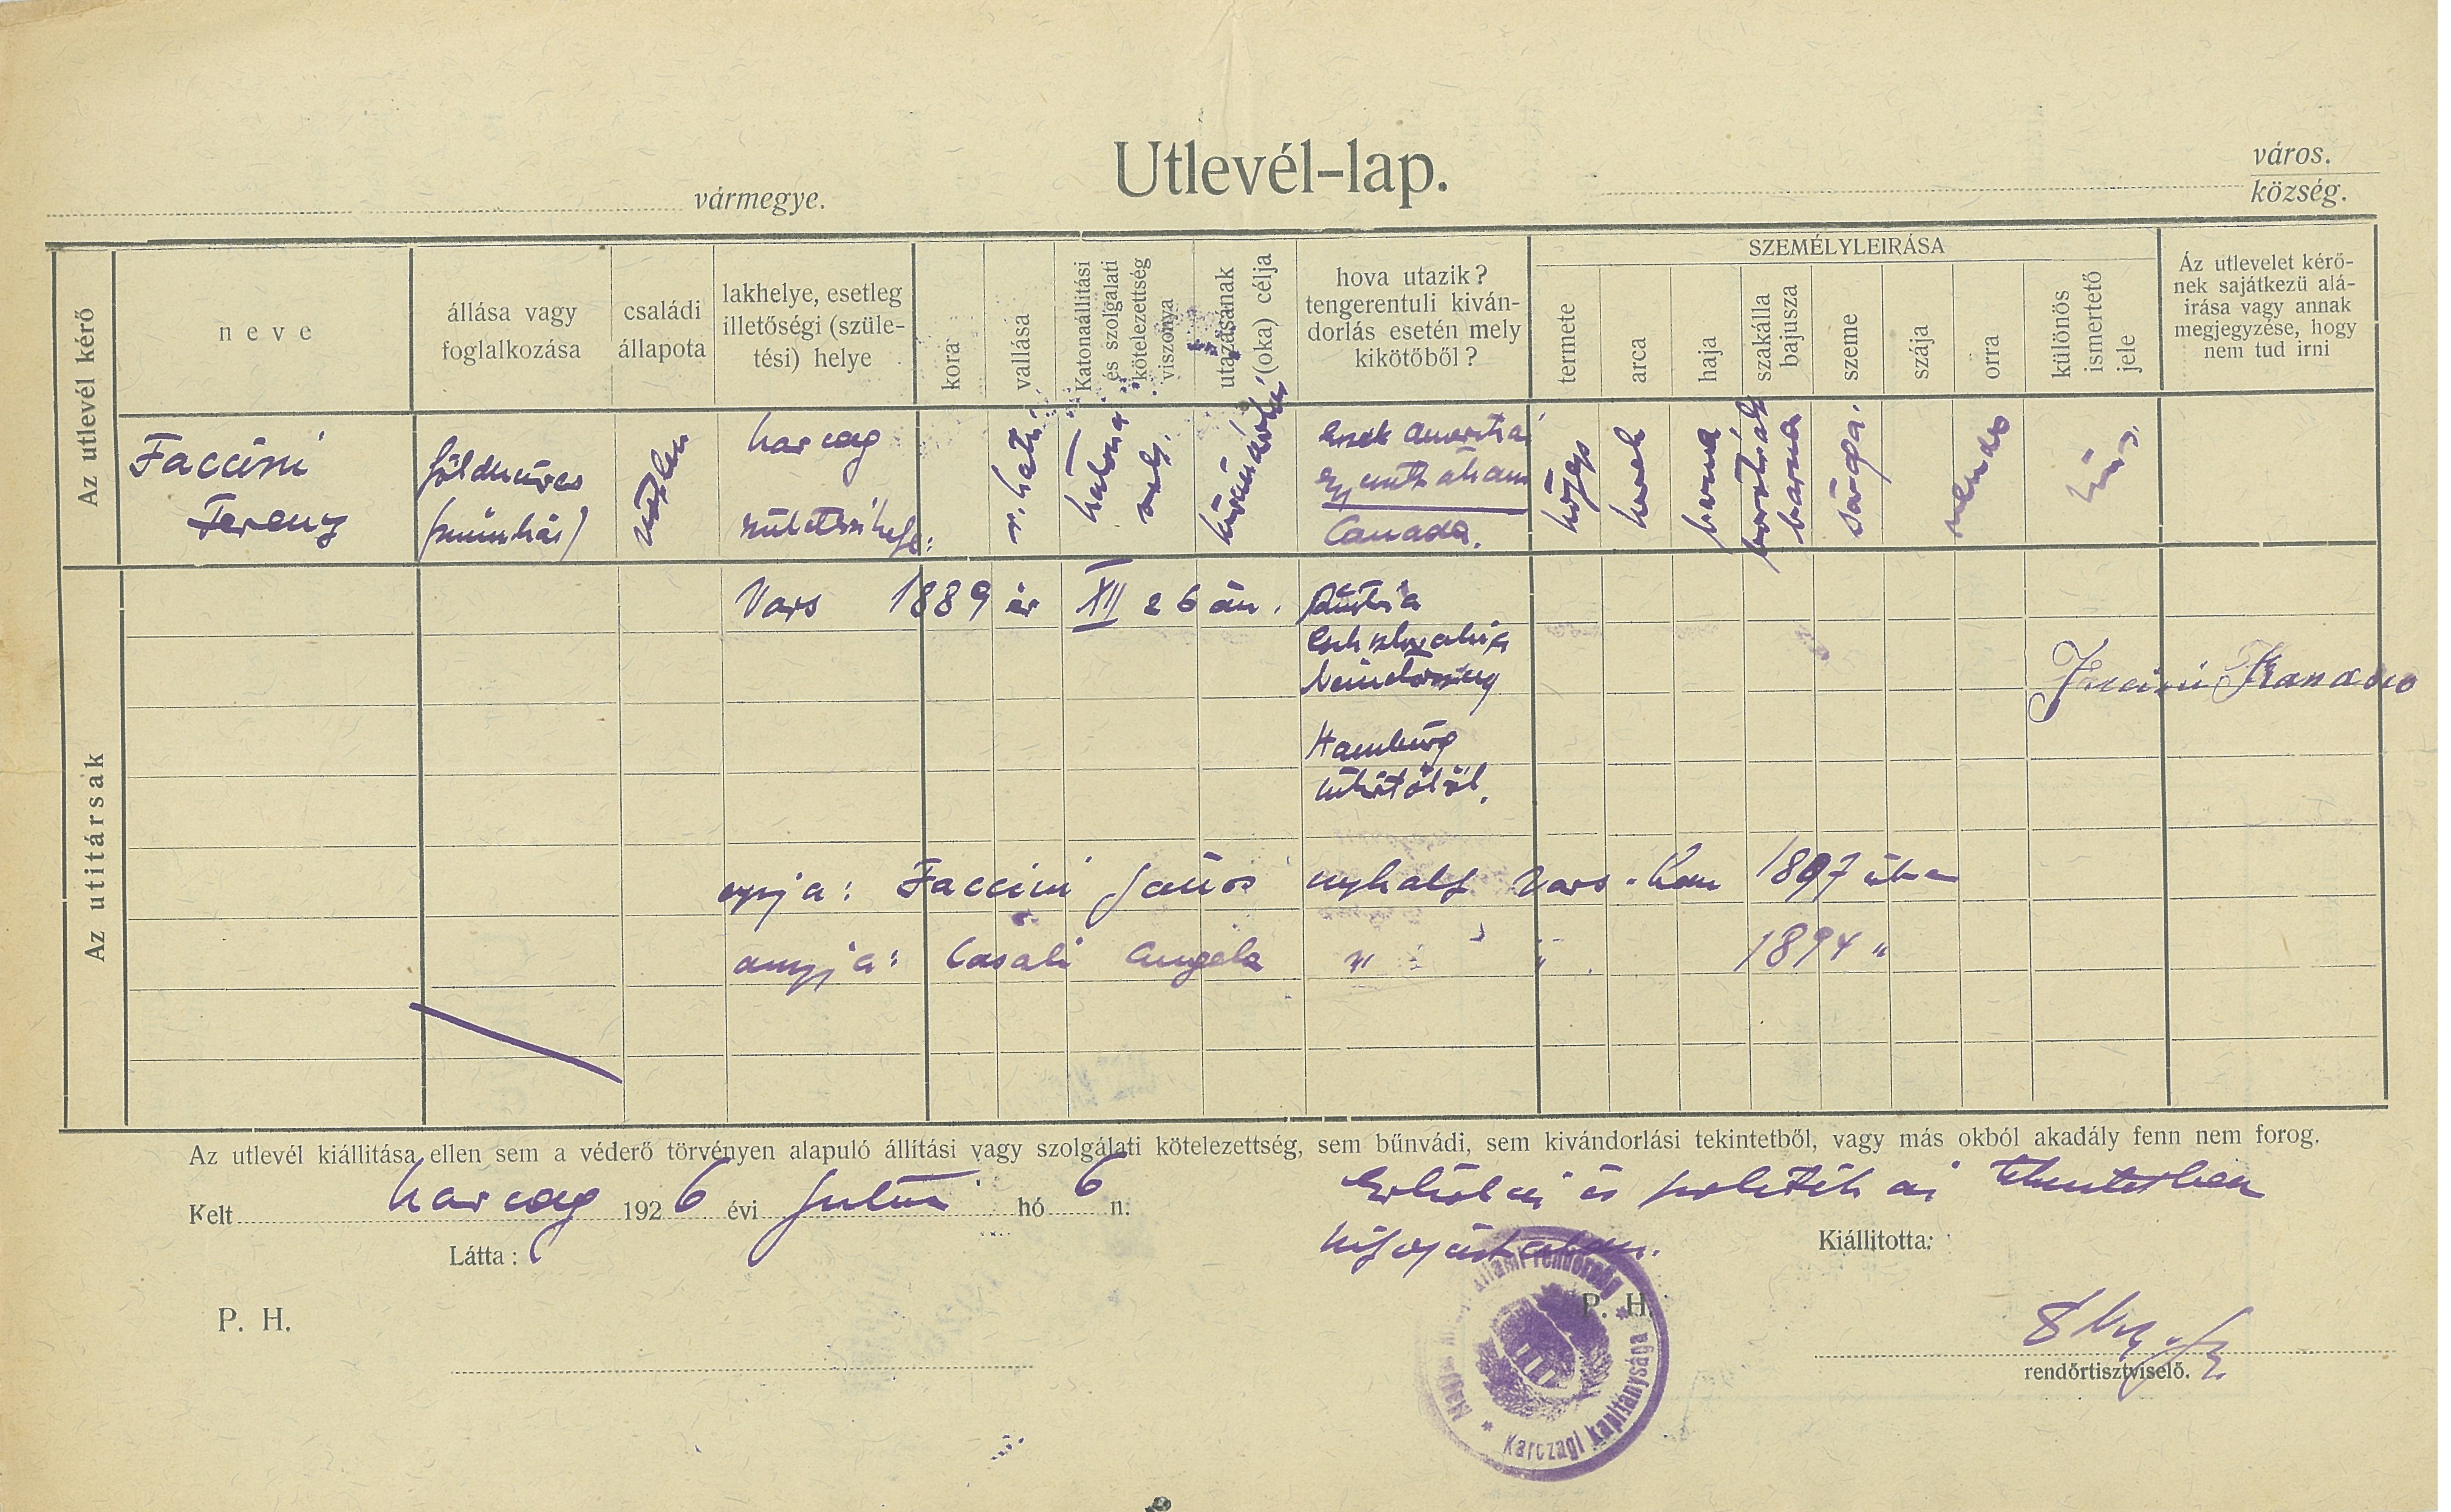 Utlevél-lap.
vármegye.
város.
község.
Az utlevél kérő
neve
állása vagy
foglalkozása
családi
állapota
lakhelye, esetleg
illetőségi (szüle-
tési) helye
kora
vallása
Katonaállítási
és szolgalati
kötelezettség
viszonya
utazásának
(oka) célja
hova utazik?
tengerentuli kiván-
dorlás esetén mely
kikötőből?
SZEMÉLYLEIRÁSA
termete
arca
haja
szakálla
bajusza
szeme
szája
orra
különös
ismertető
jele
Az utlevelet kérő-
nek sajátkezü alá-
irása vagy annak
megjegyzése, hogy
nem tud irni
Faccini
Ferenz
földmüves
nőtlen
karcag
r. kath.
kivándorlás
Canada.
közép
kerek
barna
borotvált
barna
sárga.
rendes
Vars 1889 év XII 26 án.
Austria
Hamburg
kikötőből.
Faccini
Az utitársak
apja: Faccini János Vars-ban 1897
anyja: Casali Angela " " 1894 "
Az utlevél kiállitása ellen sem a véderő törvényen alapuló állítási vagy szolgálati kötelezettség, sem bűnvádi, sem kivándorlási tekintetből, vagy más okból akadály fenn nem forog.
Kelt karcag 1926 évi hó 6 n.
Erkölcsi és politikai tekintetben
kifogástalan.
Látta:
Kiállitotta:
P. H.
P. H.
rendőrtisztviselő.
államrendőrség
Karczagi kapitánysága